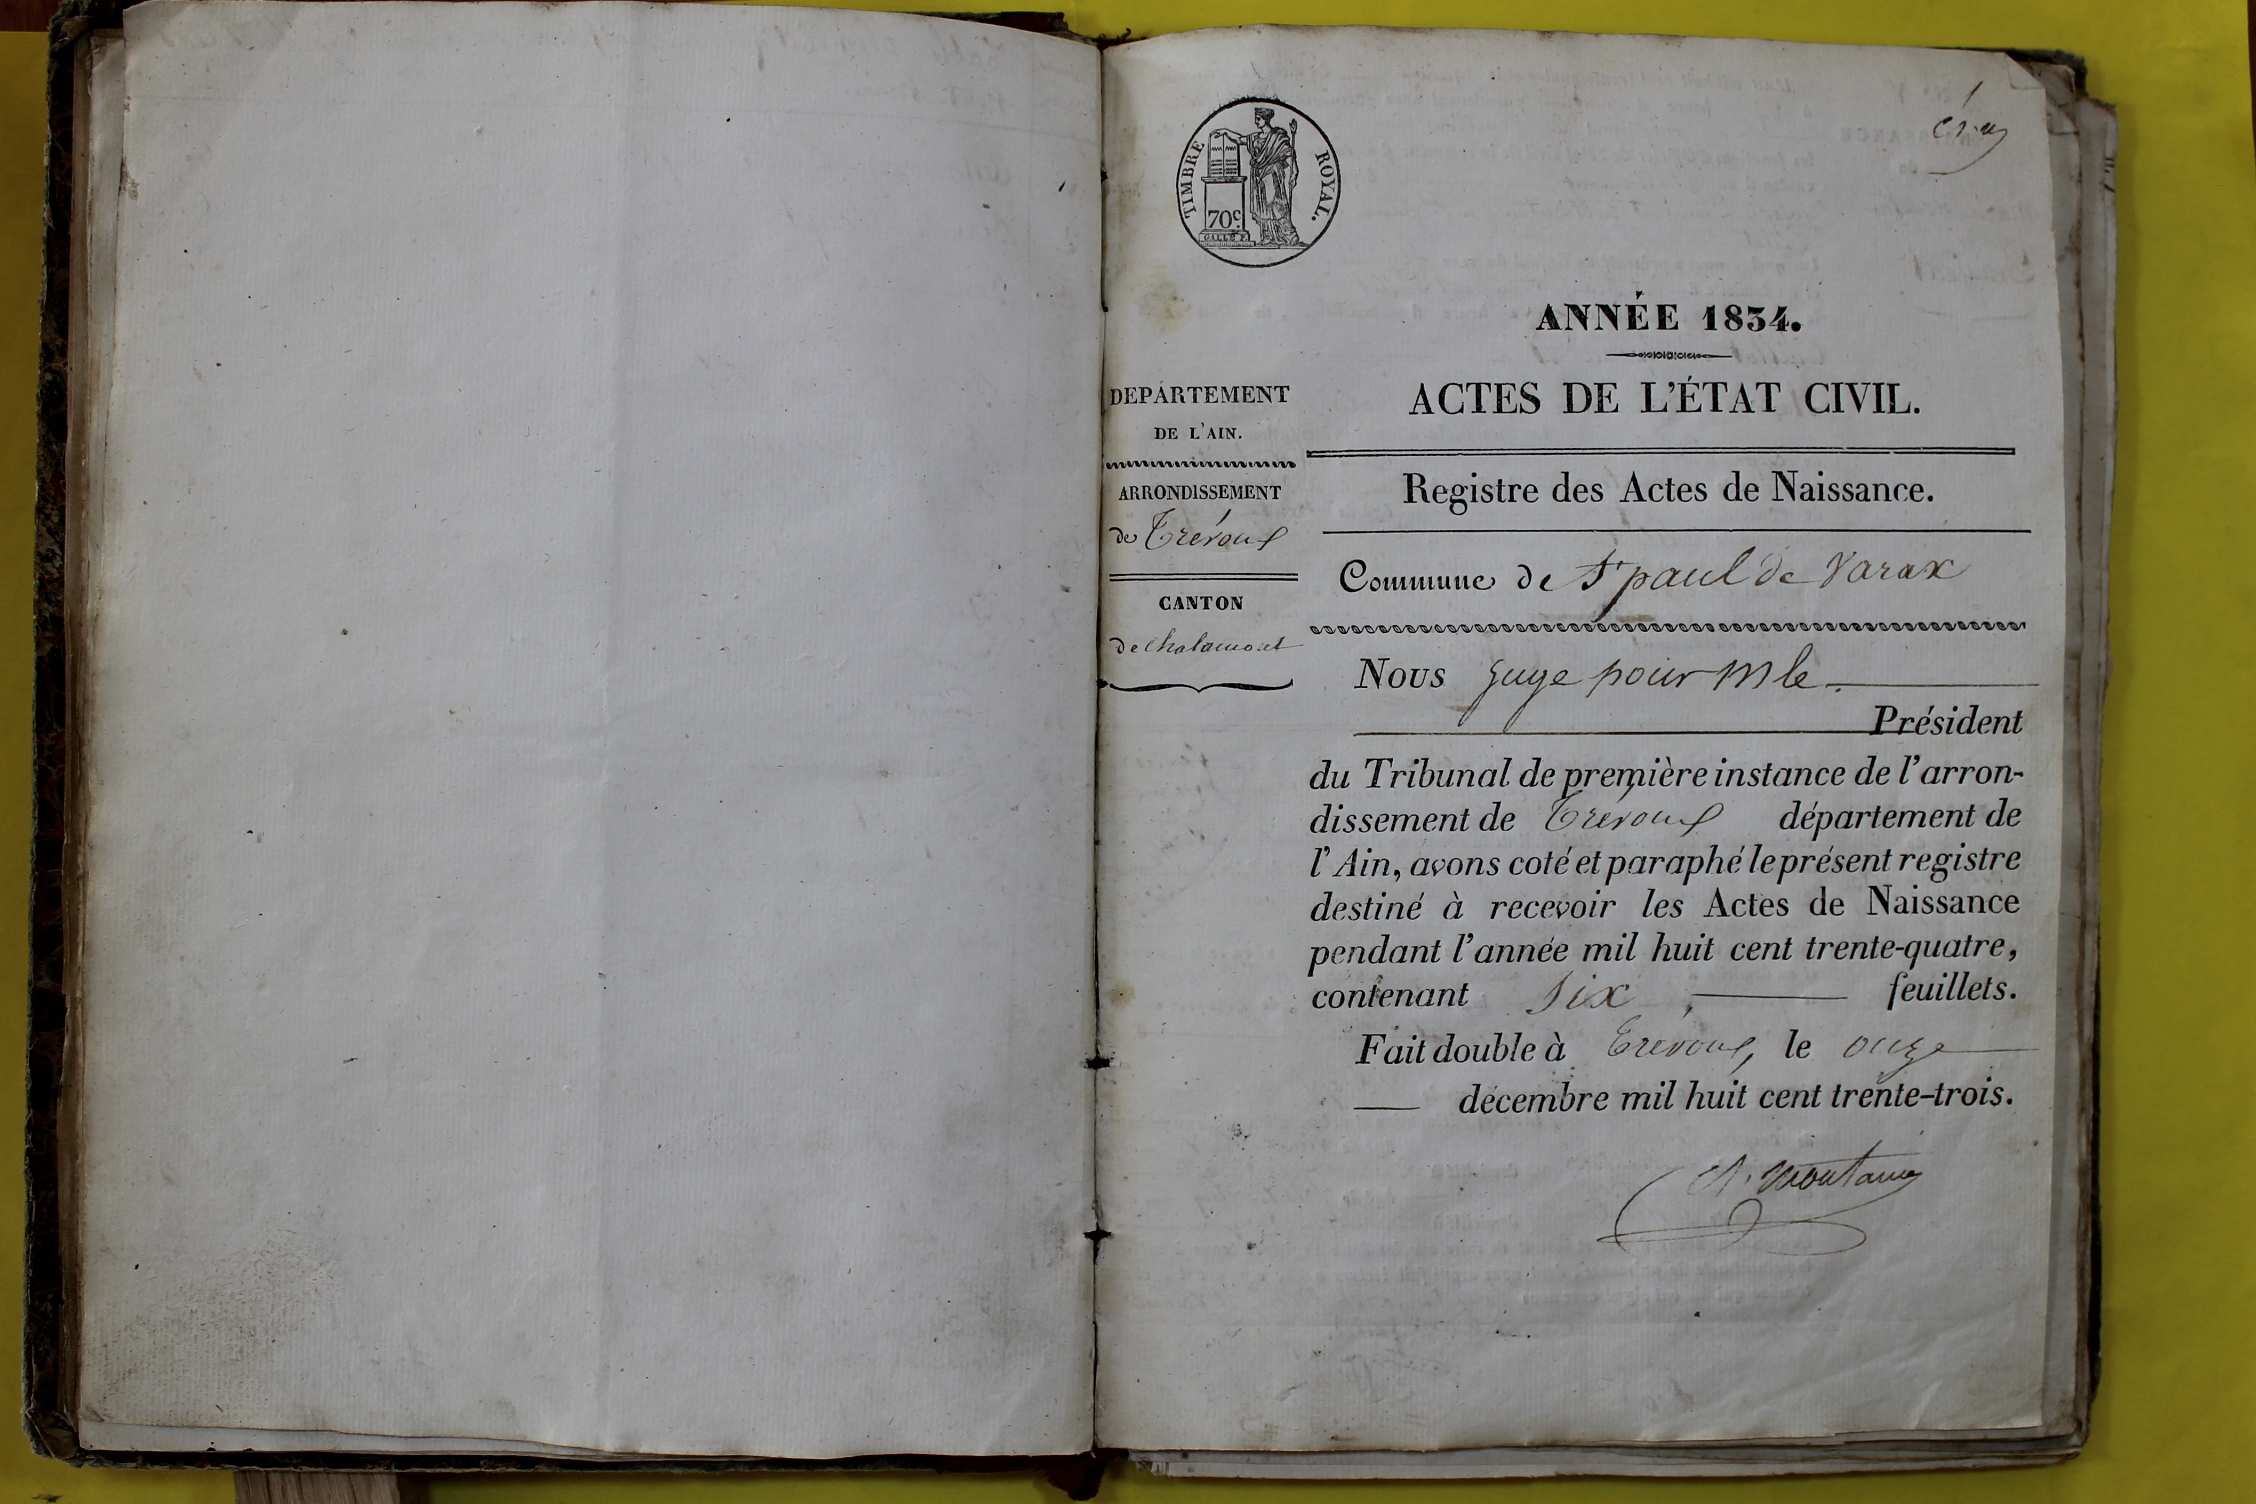 1
TIMBRE ROYAL.
70c.
ANNÉE 1834.
ACTES DE L'ÉTAT CIVIL.
Registre des Actes de Naissance.
DEPARTEMENT
DE L'AIN.
ARRONDISSEMENT
de Trévoux
CANTON
de Chalamont
Commune de St paul de Varax
Nous Juge pour Mr le
Président
du Tribunal de première instance de l'arron-
dissement de Trévoux département de
l'Ain, avons coté et paraphé le présent registre
destiné à recevoir les Actes de Naissance
pendant l'année mil huit cent trente-quatre,
contenant Six feuillets.
Fait double à Trévoux, le onze
décembre mil huit cent trente-trois.